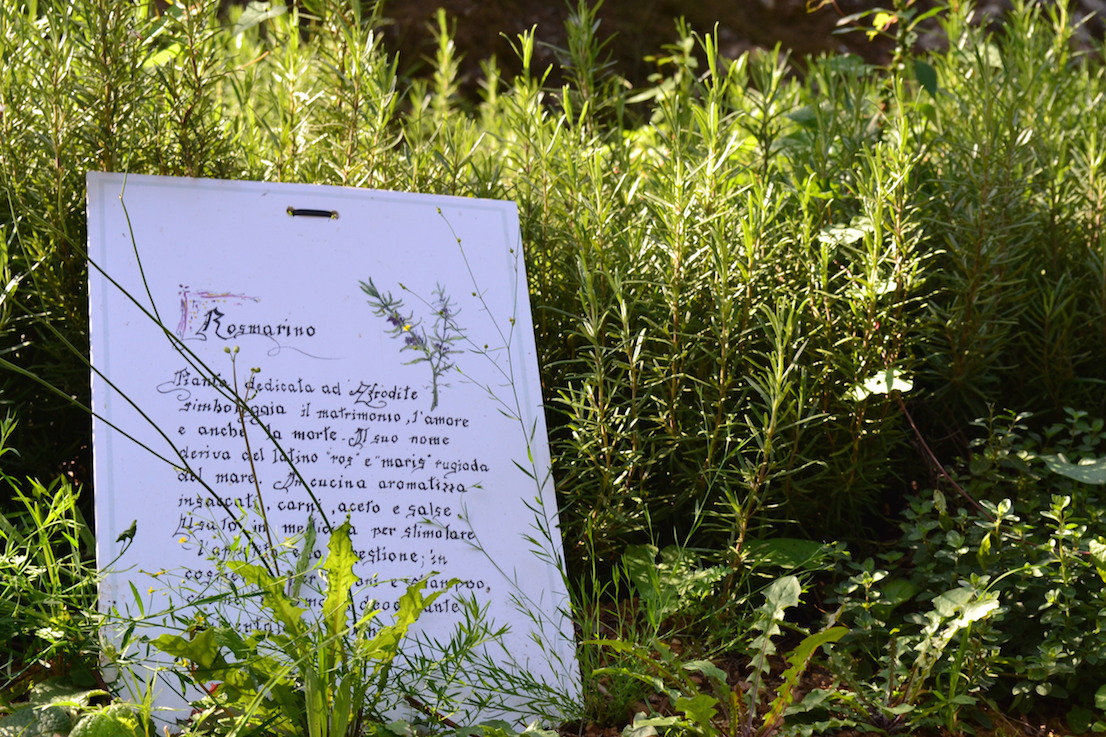 Rosmarino
Pianta dedicata ad Afrodite
simboleggia il matrimonio, l'amore
e anche la morte. Il suo nome
deriva dal latino "ros" e "maris" rugiada
del mare. In cucina aromatizza
insaccati, carni, aceto e salse
Usato in medicina per stimolare
l'appetito e la digestione; in
deodorante